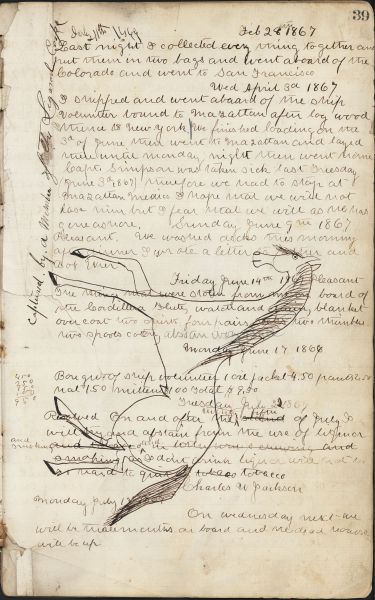 39
Feb 28th 1867
Last night I collected every thing together and
put them in two bags and went aboard of the
Colorado and went to San Francisco
Wed April 3d 1867
I shipped and went aboard of the ship
Volunteer bound to Mazattan after log wood
thence to New York We finished loading on the
3d of June then went to Mazattan and layed
there until monday night then went
Capt. Simpson was taken sick last Tuesday
June 3d 1867 therefore we had to stop at
Mazattan Mexico I hope that we will not
loose him but I fear that we will as he has
gone ashore, Sunday June 9th 1867
Pleasant. We washed decks this morning
dinner I wrote a letter
Friday June 14th Pleasant
The things that were stolen from me on board of
the Cordillera blanket
over coat two four pairs two
two
Monday June 17 1866
Bought of ship volunteer 1 oil jacket 4.50 pants 2.50
hat 1.50 mittens 1.00
Tuesday 1867
Resolved On and after the of July I
will try and abstain from the use of liquor
and smoking and
smoking as I don't drink liquor will not be
so hard to quit tobacco
Charles W Jackson
Monday July 1
On wednesday next we
will be three months on board and no dead horse
will be up
Captured by a Member of the Legend